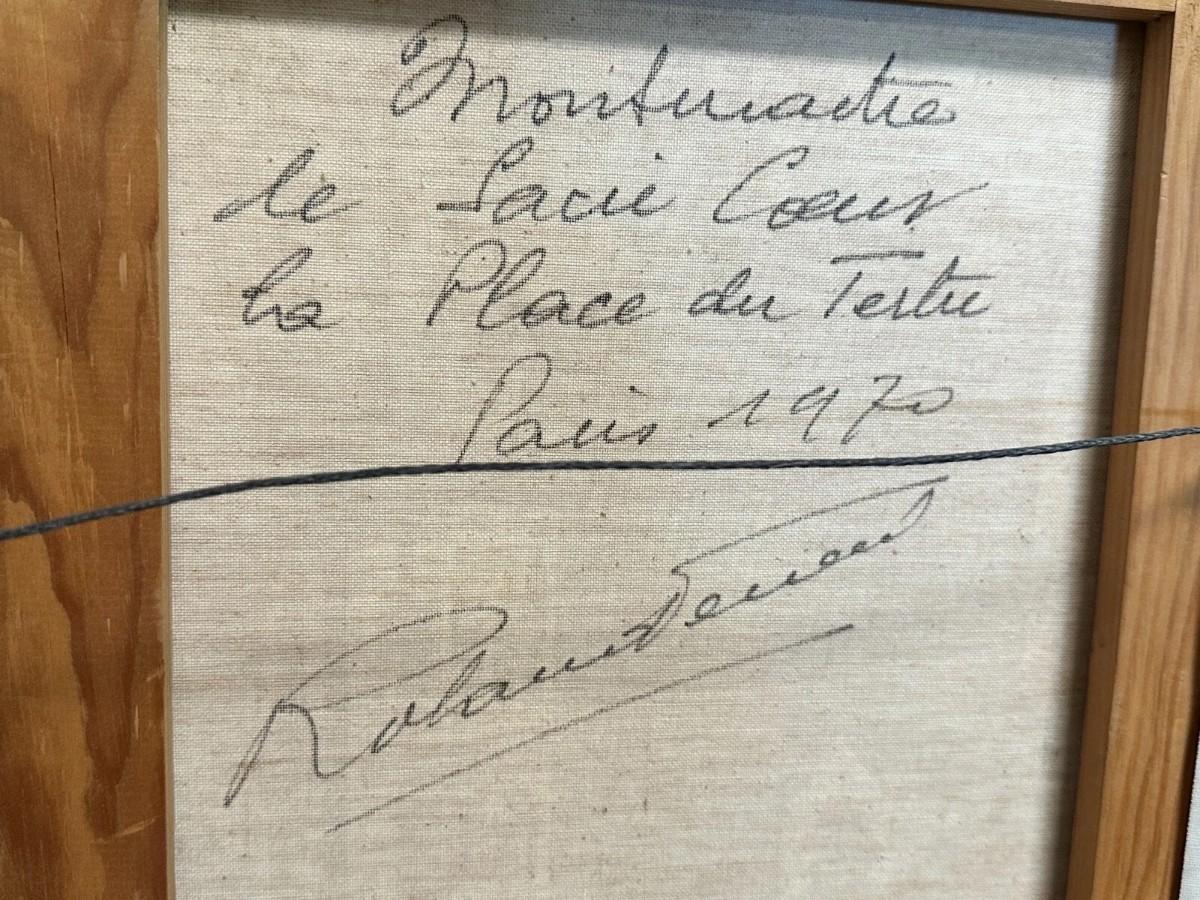 Montmartre
le Sacré Cœur
La Place du Tertre
Paris 1970
Roland